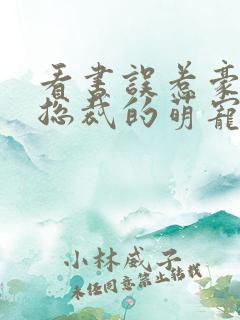 看书误惹豪
总裁的萌宠
小林威子
未经同意禁止转载